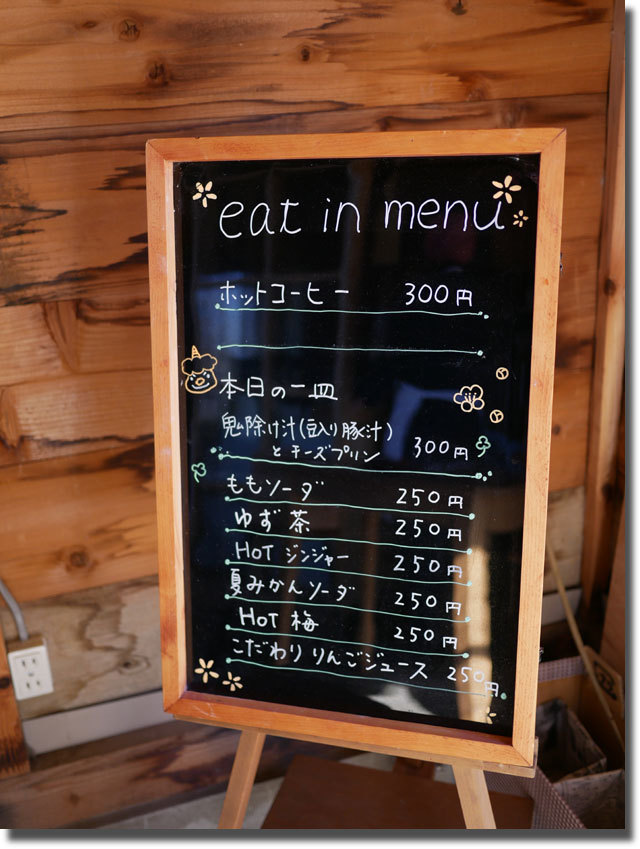 eat in menu
ホットコーヒー 300円
本日の一皿
鬼除け汁(豆入り豚汁)
とチーズプリン 300円
ももソーダ 250円
ゆず茶 250円
HOT ジンジャー 250円
夏みかんソーダ 250円
HOT 梅 250円
こだわりりんごジュース 250円